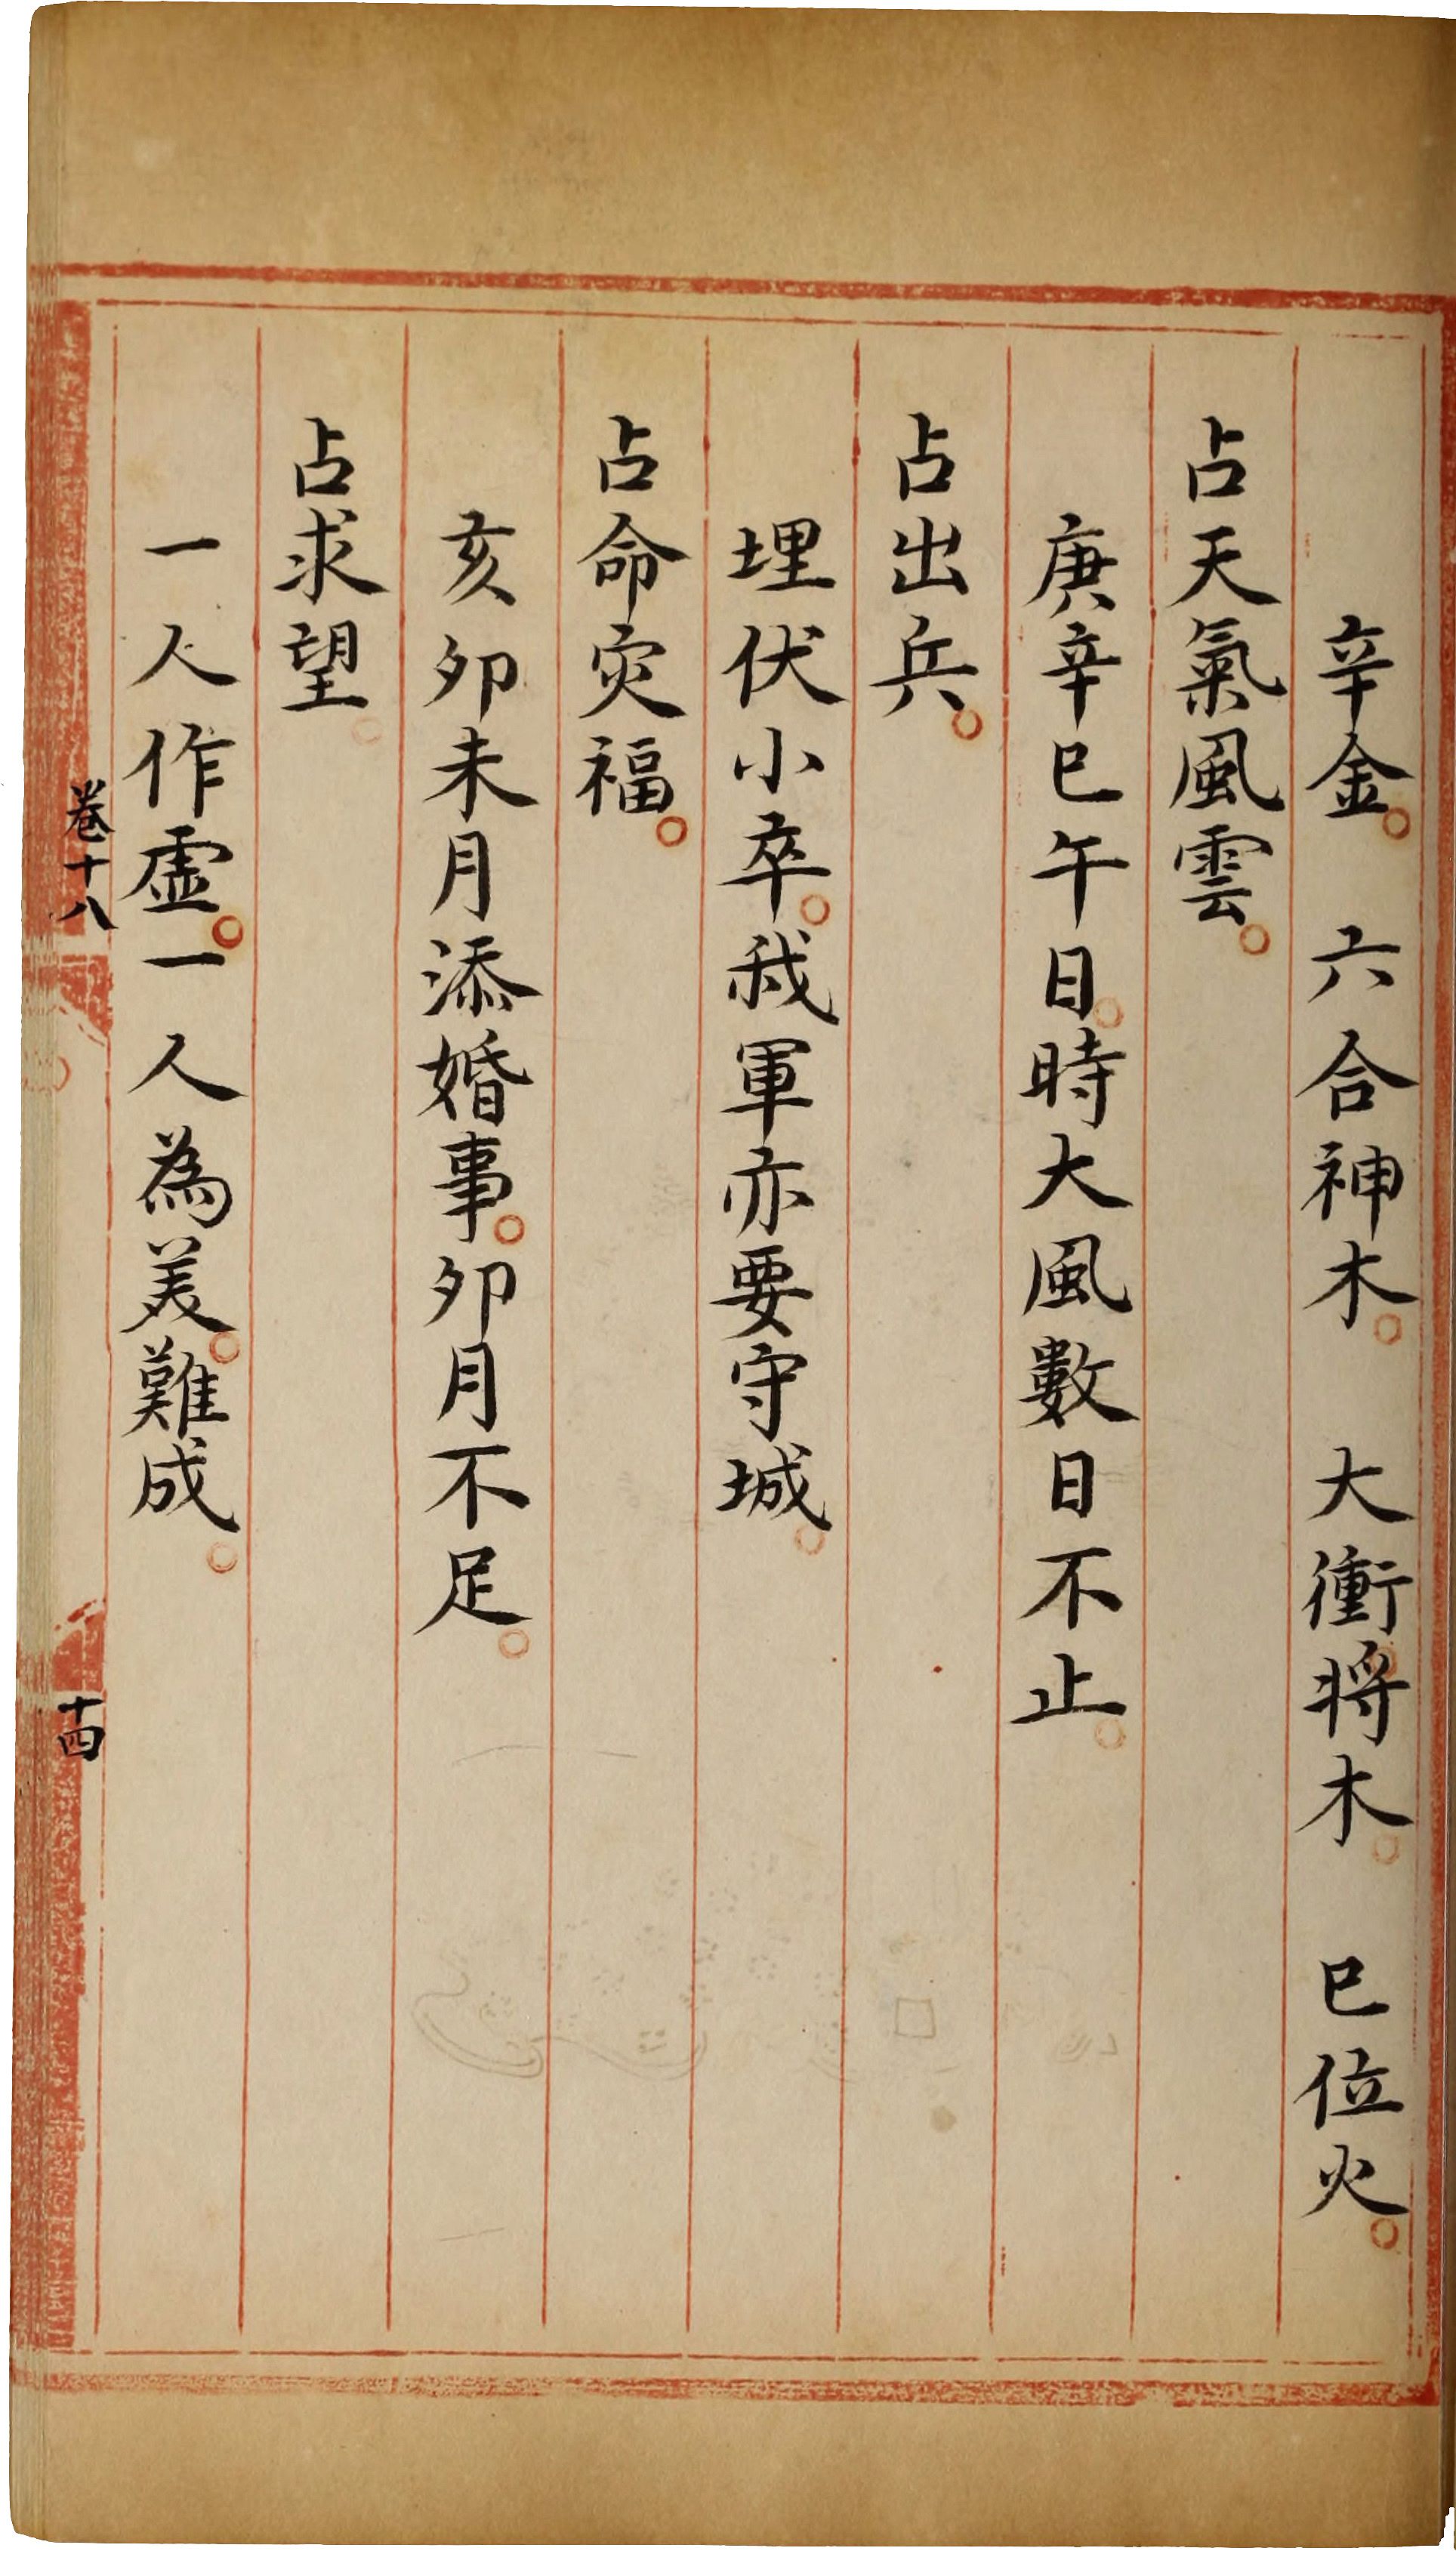 辛金。 六合神木。 大衝將木。 巳位火。
占天氣風雲。
庚辛巳午日。時大風數日不止。
占出兵。
埋伏小卒。我軍亦要守城。
占命灾福。
亥卯未月添婚事。卯月不足。
占求望。
一人作虛。一人為美。難成。
卷十八
十四